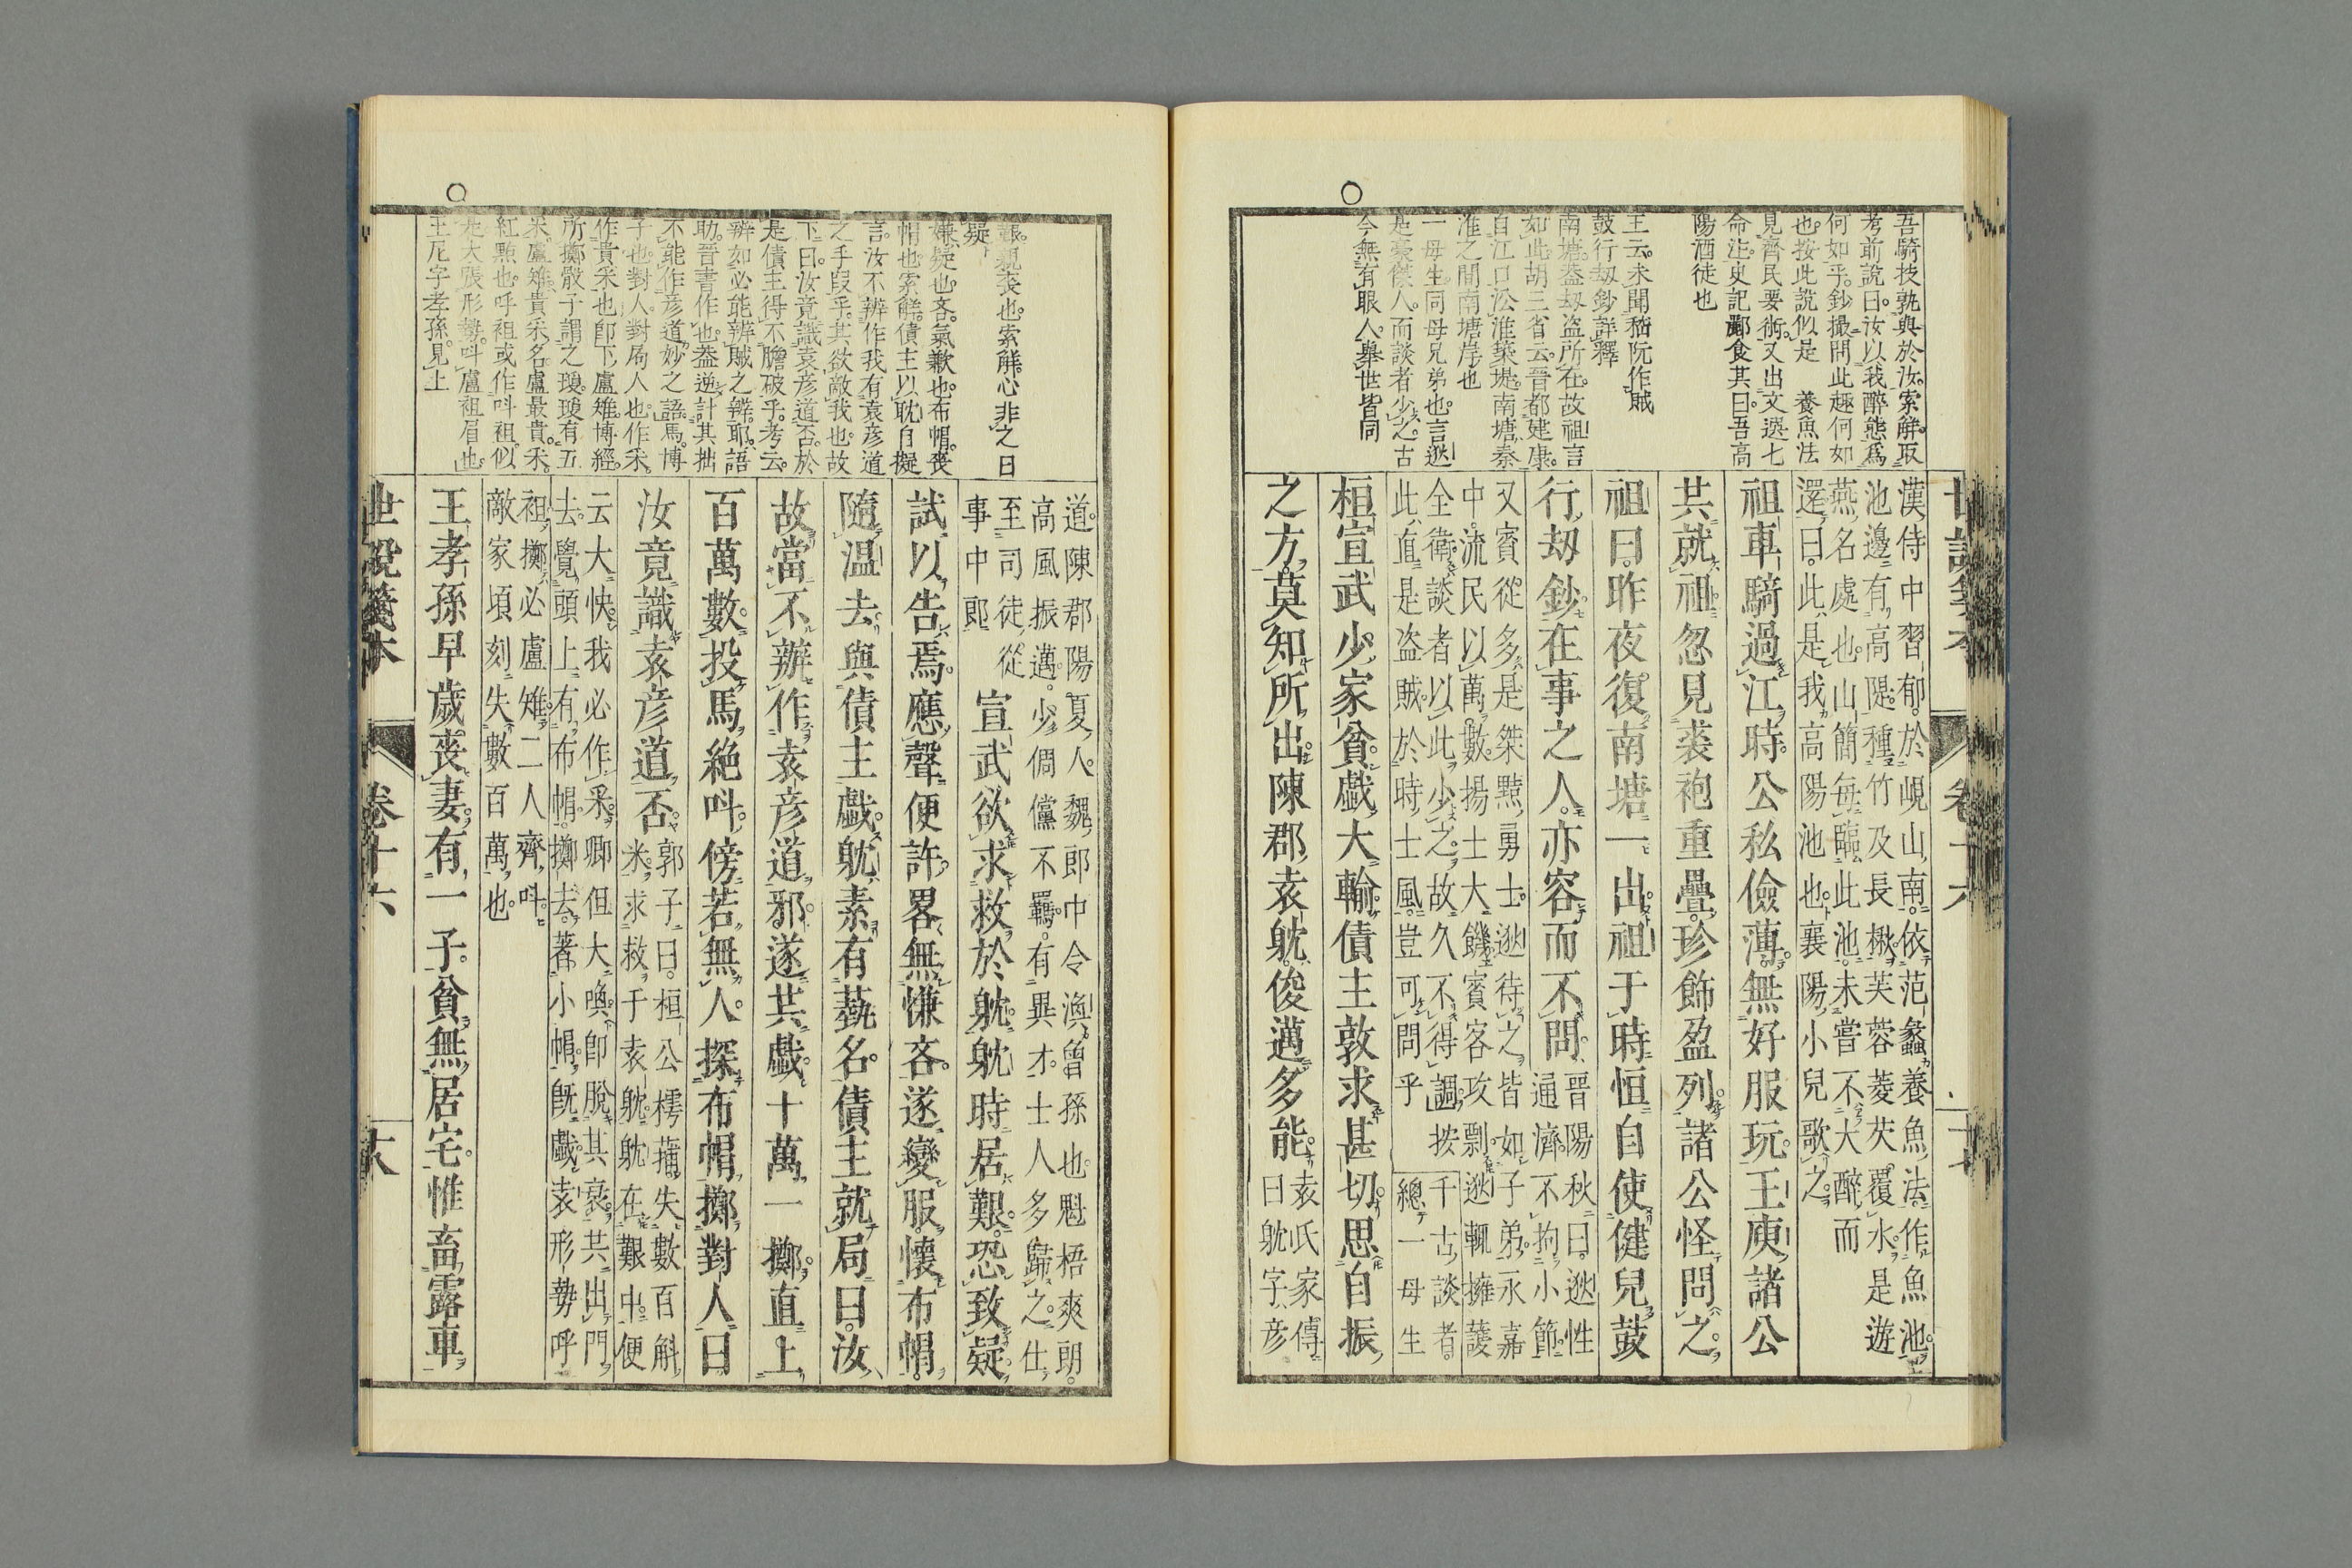 吾騎技孰與於汝索解取
考前說曰汝以我醉態爲
何如乎鈔撮問此趣何如
也按此說似是　養魚法
見齊民要術又出文選七
命注史記酈食其曰吾高
陽酒徒也
王云未聞嵇阮作賊
鼓行刼鈔詳釋
南塘蓋刼盗所在故祖言
如此胡三省云晉都建康
自江口㳂淮築堤南塘秦
淮之間南塘岸也
一母生同母兄弟也言逖
是豪傑人而談者少之古
今無有眼人舉世皆同
漢侍中習郁於峴山南依范蠡養魚法作魚池
池邊有高隄種竹及長楸芙蓉菱茨覆水是遊
燕名處也山簡每臨此池未嘗不大醉而
還曰此是我高陽池也襄陽小兒歌之
祖車騎過江時公私儉薄無好服玩王庾諸公
共就祖忽見裘袍重疊珍飾盈列諸公怪問之
祖曰昨夜復南塘一出祖于時恒自使健兒鼓
行刼鈔在事之人亦容而不問
晉陽秋曰逖性
通濟不拘小節
又賓從多是桀黠勇士逖待之皆如子弟永嘉
中流民以萬數揚士大饑賓客攻剽逖輒擁護
全衛談者以此少之故久不得調按
此直是盗賊於時士風豈可問乎
千古談者
總一母生
桓宣武少家貧戲大輸債主敦求甚切思自振
之方莫知所出陳郡袁躭俊邁多能
袁氏家傳
曰躭字彦
世說箋本　卷十六
艱親喪也索解心非之曰
疑
嫌疑也吝氣歉也布帽喪
帽也索解債主以耽自擬
言汝不辨作我有袁彦道
之手段乎其欲敵我也故
下曰汝竟識袁彦道否於
是債主得不膽破乎考云
辨如必能辨賊之辨耶語
助晉書作也蓋逆計其拙
不能作彦道妙之語馬博
子也對人對局人也作采
作貴采也卽下盧雉博經
所擲骰子謂之瓊瓊有五
采盧雉貴采名盧最貴采
紅點也呼祖或作呌祖似
是大張形勢呌盧祖眉也
王尼字孝孫見上
道陳郡陽夏人魏郎中令渙曾孫也魁梧爽朗
高風振邁少倜儻不羈有異才士人多歸之仕
至司徒從
事中郎
宣武欲求救於躭躭時居艱恐致疑
試以告焉應聲便許畧無慊吝遂變服懷布帽
隨温去與債主戲躭素有蓺名債主就局曰汝
故當不辦作袁彦道邪遂共戲十萬一擲直上
百萬數投馬絶呌傍若無人探布帽擲對人曰
汝竟識袁彦道否
郭子曰桓公樗蒱失數百斛
米求救于袁躭躭在艱中便
云大快我必作采卿但大喚卽脫其衰共出門
去覺頭上有布帽擲去著小帽旣戲袁形勢呼
祖擲必盧雉二人齊呌
敵家頃刻失數百萬也
王孝孫早歲喪妻有一子貧無居宅惟畜露車
世說箋本　卷十六　十八